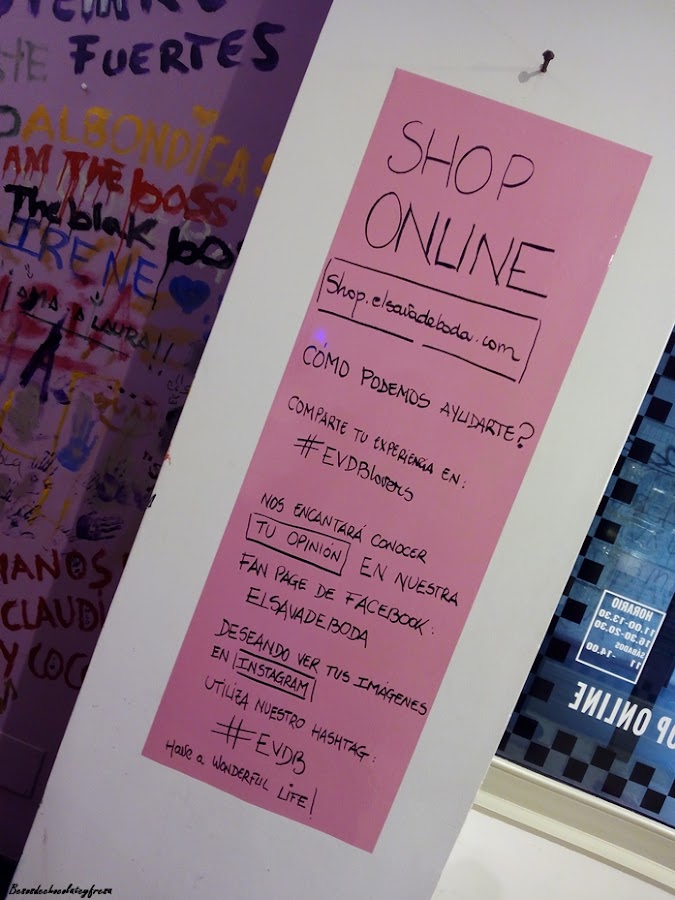 FUERTES
ALBONDIGAS
AM THE boss
The blak bos
IRENE
AMA A LAURA!!
MANOS
CLAUDI
Y COCO
SHOP
ONLINE
Shop.elsavadeboda.com
CÓMO PODEMOS AYUDARTE?
COMPARTE TU EXPERIENCIA EN:
#EVDBlovers
NOS ENCANTARÁ CONOCER
TU OPINIÓN EN NUESTRA
FAN PAGE DE FACEBOOK:
ELSAVADEBODA
DESEANDO VER TUS IMÁGENES
EN INSTAGRAM
UTILIZA NUESTRO HASHTAG:
#EVDB
Have a WONDERFUL LIFE!
HORARIO
11.00-13.30
16.30-20.30
SÁBADOS
11
-14.00
OP ONLINE
Besosdechocolateyfresa